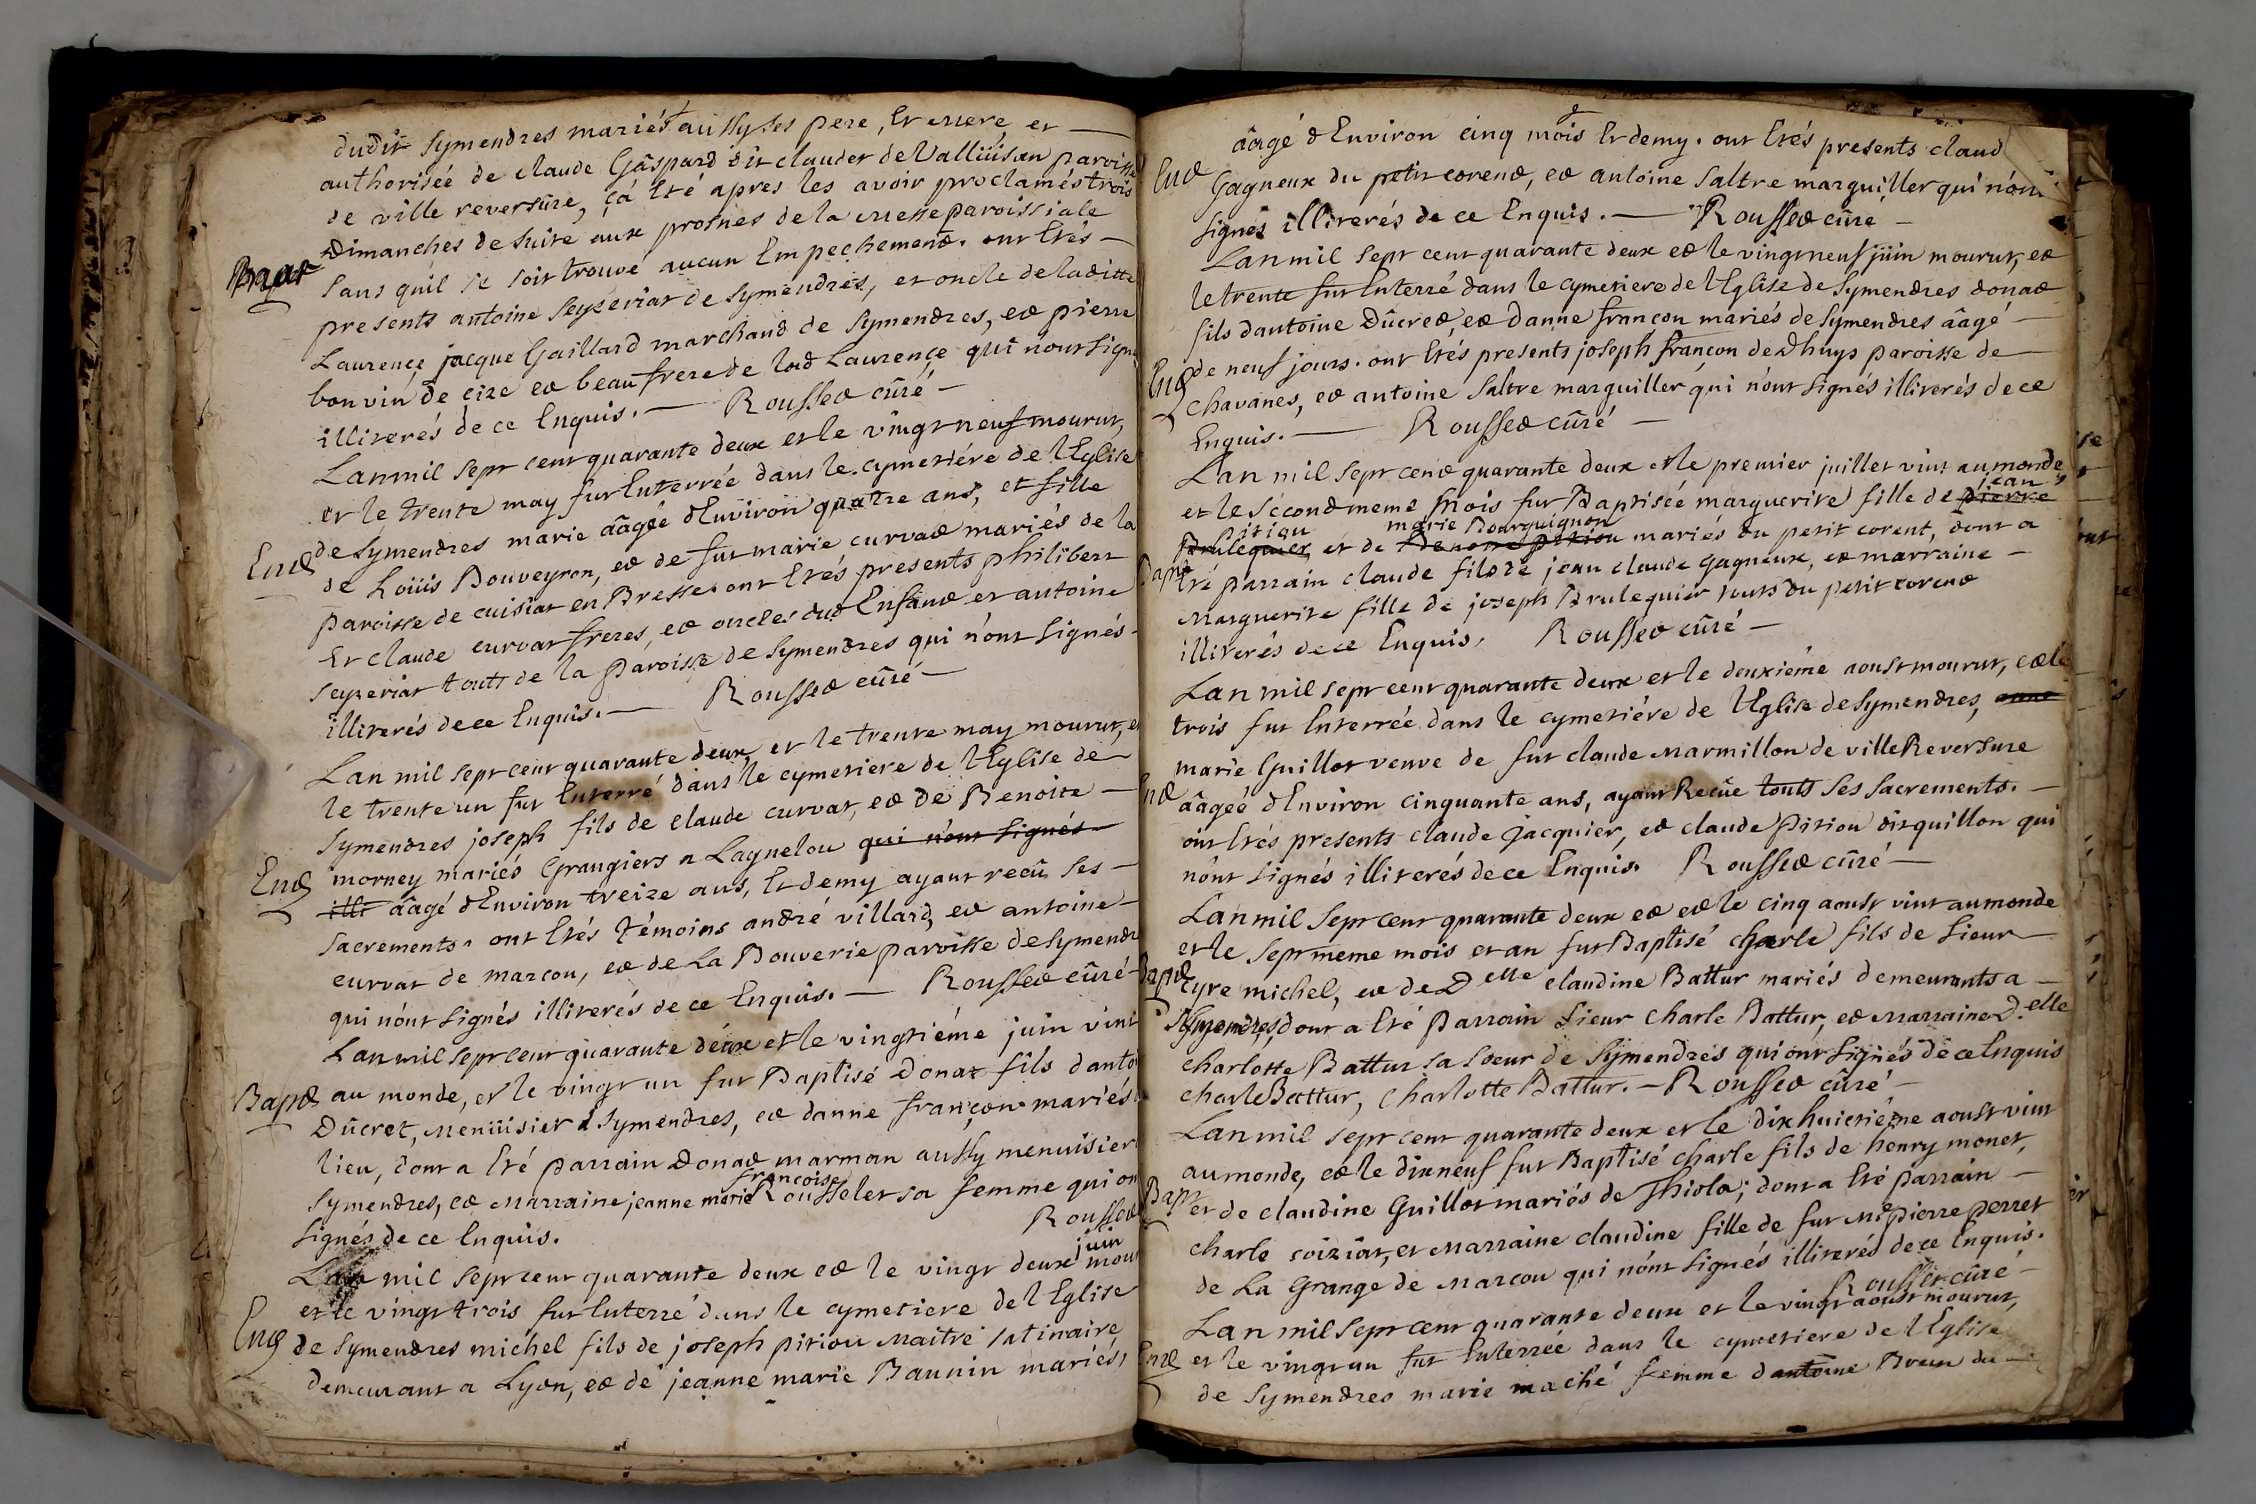 dudit Symendres mariés aussy ses pere, Et mere et —
authorisée de claude Gâspard dit claudet de Valliiisan paroisse
de ville reversûre, çá Eté apres les avoir proclamés trois
Dimanches de suite aux prosnes de la messe paroissiale
sans quil se soit trouvé aucun Empechement. ont Etés —
presents antoine seyzeriat de symendres, et oncle de laditte
Laurençe jacque Gaillard marchand de symendres, et pierre
bonvin de cize et beaufrere de lad Laurençe qui n'ont signé
illiterés de ce Enquis. — Rousset cûré —
Lan mil sept cent quarante deux et le vingt neuf mourut,
Ent
et le trente may fut Enterrée dans le cymetiére de l'Eglise
de symendres marie âagée d'Environ quatre ans, et fille
de Loüis Bouveyron, et de fut marie curvat mariés de la
paroisse de cuisiat en Bresse. ont Etés presents philibert
Et claude curvat freres, et oncles dud Enfant et antoine
seyzeriat touts de la paroisse de symendres qui n'ont signés —
illiterés de ce Enquis. — Rousset cûré —
Lan mil sept cent quarante deux, et le trente may mourut, et
le trente un fut Enterré dans le cymetiere de l'Eglise de
symendres joseph fils de claude curvat, et de Benoite —
Ent
morney mariés Grangiers a Lagnelou qui n'ont signés
illi âagé d'Environ treize ans, Et demy ayant recû ses —
sacrements. ont Etés témoins andré villard, et antoine —
curvat de marcou, et de La Bouverie paroisse de symendres
qui n'ont signés illiterés de ce Enquis. — Rousset cûré —
Lan mil sept cent quarante deux et le vingtiéme juin vint
Bapt
au monde, et le vingt un fut Baptisé Donat fils d'antoine
Dûcret, menüisier a symendres, et danne françon mariés
lieu, dont a Eté parrain Donat marman aussy menuisier
françoise
symendres, et marraine jeanne marie Rousselet sa femme qui ont
signés de ce Enquis. Rousset
juin
Lan mil sept cent quarante deux et le vingt deux mourut
et le vingt trois fut Enterré dans le cymetiere de l'Eglise
Ent
de symendres michel fils de joseph pitiou maitre satinaire
demeurant a Lyon, et de jeanne marie Baunin mariés,
âagé d'Environ cinq mois Et demy. ont Etés presents claud
Ent
Gagneux du petit corent, et antoine saltre marguiller qui n'ont
signés illiterés de ce Enquis. — Rousset cûré —
Lan mil sept cent quarante deux et le vingt neuf juin mourut, et
le trente fut Enterré dans le cymetiere de l'Eglise de symendres donat
fils d'antoine Dûcret, et danne françon mariés de symendres âagé —
Ent
de neuf jours. ont Etés presents joseph françon de Dhuys paroisse de
chavanes, et antoine saltre marguiller qui n'ont signés illiterés de ce
Enquis. — Rousset cûré —
Lan mil sept cent quarante deux et le premier juillet vint au monde,
et le second meme mois fut Baptisée marguerite fille de pierre jean
pitiou marie Bourguignon
Brulequier, et de Benoite pitiou mariés du petit corent, dont a
Bapt
Eté parrain claude fils de jean claude gagneux, et marraine —
marguerite fille de joseph Brulequier touts du petit corent
illiterés de ce Enquis, Rousset cûré —
Lan mil sept cent quarante deux et le deuxiéme aoust mourut, et le
trois fut Enterrée dans le cymetiére de l'Eglise de symendres, anne
marie Guillot veuve de fut claude marmillon de ville Reversure
Ent
âageé d'Environ cinquante ans, ayant Recüe touts ses sacrements. —
ont Etés presents claude jacquier, et claude pitiou dit quillon qui
n'ont signés illiterés de ce Enquis. Rousset cûré —
Lan mil sept cent quarante deux et et le cinq aoust vint au monde
et le sept meme mois et an fut Baptisé charle fils de sieur
Bapt
Cyre michel, et de Delle claudine Battur mariés demeurants a —
symendres, dont a Eté parrain sieur charle Battur, et marraine D.elle
charlotte Battur sa soeur de symendres qui ont signés de ce Enquis
charle Battur, charlotte Battur. — Rousset cûré —
Lan mil sept cent quarante deux et le dix huictiéme aoust vint
au monde, et le dixneuf fut Baptisé charle fils de henry monet,
Bapt
et de claudine Guillot mariés de Thiola; dont a Eté parrain —
charle coiziat, et marraine claudine fille de fut Me pierre perret
de La Grange de marcou qui n'ont signés illiterés de ce Enquis.
Rousset cûré —
Lan mil sept cent quarante deux et le vingt aoust mourut,
Ent
et le vingt un fut Enterrée dans le cymetiere de l'Eglise
de symendres marie maché femme d'antoine Brun du —